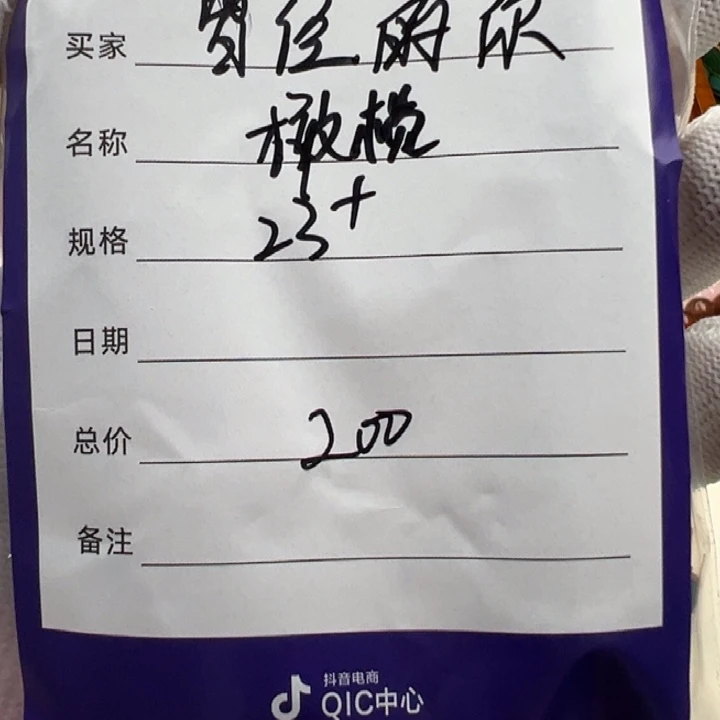 买家
名称 橄榄
规格 23+
日期
总价 200
备注
抖音电商
QIC中心